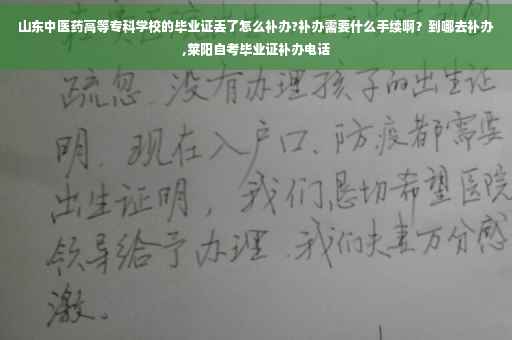 山东中医药高等专科学校的毕业证丢了怎么补办?补办需要什么手续啊？到哪去补办
,莱阳自考毕业证补办电话
疏忽.没有办理孩子的出生证
明.现在入户口、防疫都需要
出生证明，我们恳切希望医院
领导给予办理.我们夫妻万分感
激.